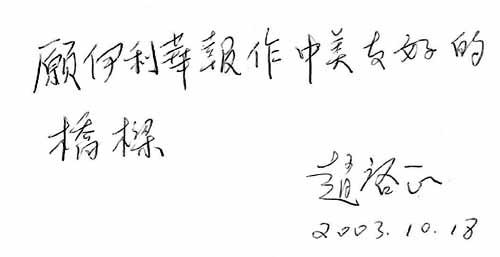 願伊利華報作中美友好的
橋樑
趙啓正
2003.10.18